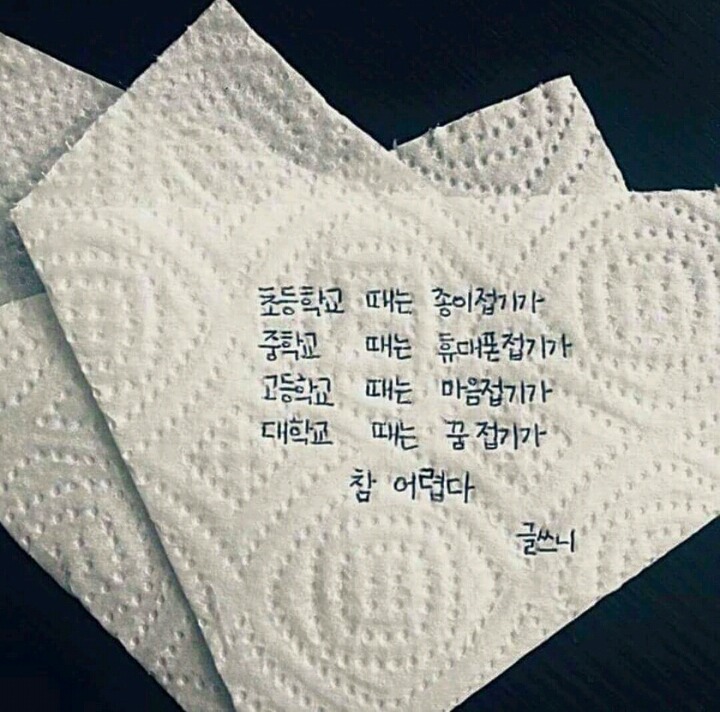 초등학교 때는 종이접기가
중학교 때는 휴대폰접기가
고등학교 때는 마음접기가
대학교 때는 꿈 접기가
참 어렵다
글쓰니